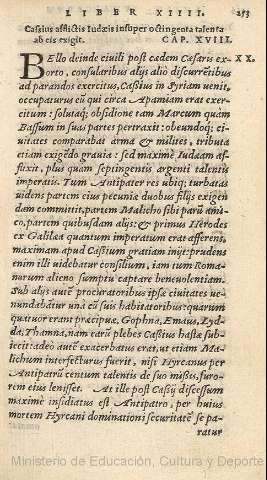 LIBER XIIII. 253
Cassius afflictis Iudæis insuper octingenta talenta
ab eis exigit. CAP. XVIII.
BEllo deinde ciuili post cædem Cæsaris ex- XX.
orto, consularibus alijs aliò discurrētibus
ad parandos exercitus, Cassius in Syriam uenit,
occupaturus eū qui circa Apamiam erat exer-
citum: solutaq; obsidione tam Marcum quàm
Bassum in suas partes pertraxit: obeundoq; ci-
uitates comparabat arma & milites, tributa
etiam exigēdo grauia: sed maximè Iudæam af-
flixit, plus quàm septingentis argenti talentis
imperatis. Tum Antipater res ubiq; turbatas
uidens partem eius pecuniæ duobus filijs exigen
dam committit, partem Malicho sibi parū ami-
co, partem quibusdam alijs: & primus Herodes
ex Galilæa quantum imperatum erat afferens,
maximam apud Cassium gratiam inijt: prudens
enim illi uidebatur consilium, iam tum Roma-
norum alieno sumptu captare beneuolentiam.
Sub alijs autē procuratoribus ipsæ ciuitates ue-
nundabātur unà cū suis habitatoribus: quarum
quatuor erant præcipuæ, Gophna, Emaus, Lyd-
da, Thamna, nam earū plebes Cassius hastæ sub-
iecit: adeò autē exacerbatus erat, ut etiam Ma-
lichum interfecturus fuerit, nisi Hyrcanus per
Antipatrū centum talentis de suo missis, furo-
rem eius lenisset. At ille post Cassij discessum
maximè insidiatus est Antipatro, per huius
mortem Hyrcani dominationi securitatē se pa-
ratur
Ministerio de Educación, Cultura y Deporte